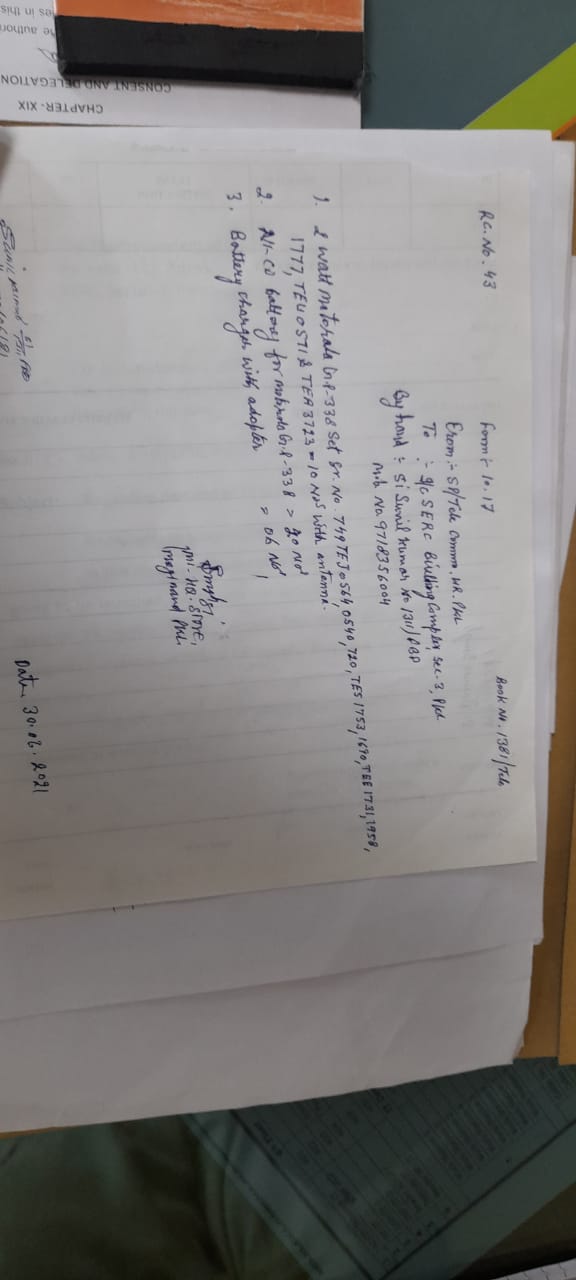 CHAPTER- XIX
CONSENT AND DELEGATION
RC. No. 43
Form :- 10.17
Book No. 1381/Tele
From :- SP/Tele Comm. HR. Pkl
To :- I/C SERC Building Complex, Sec-3, Pkl
By hand :- SI Sunil Kumar No 1311/PBP
Mob No. 9718356004
1. 2 Watt Motorola G.P-338 Set Sr. No. 749TEJ0564, 0540, 720, TES 1753, 1690, TEE 1731, 1958,
1777, TEU0571 & TEA3723 = 10 Nos with antenna.
2. Ni-Cd battery for motorola G.P-338 = 20 Nos
3. Battery charger with adapter = 06 Nos
HQ. Store,
Moginand Pkl.
Date 30.06.2021